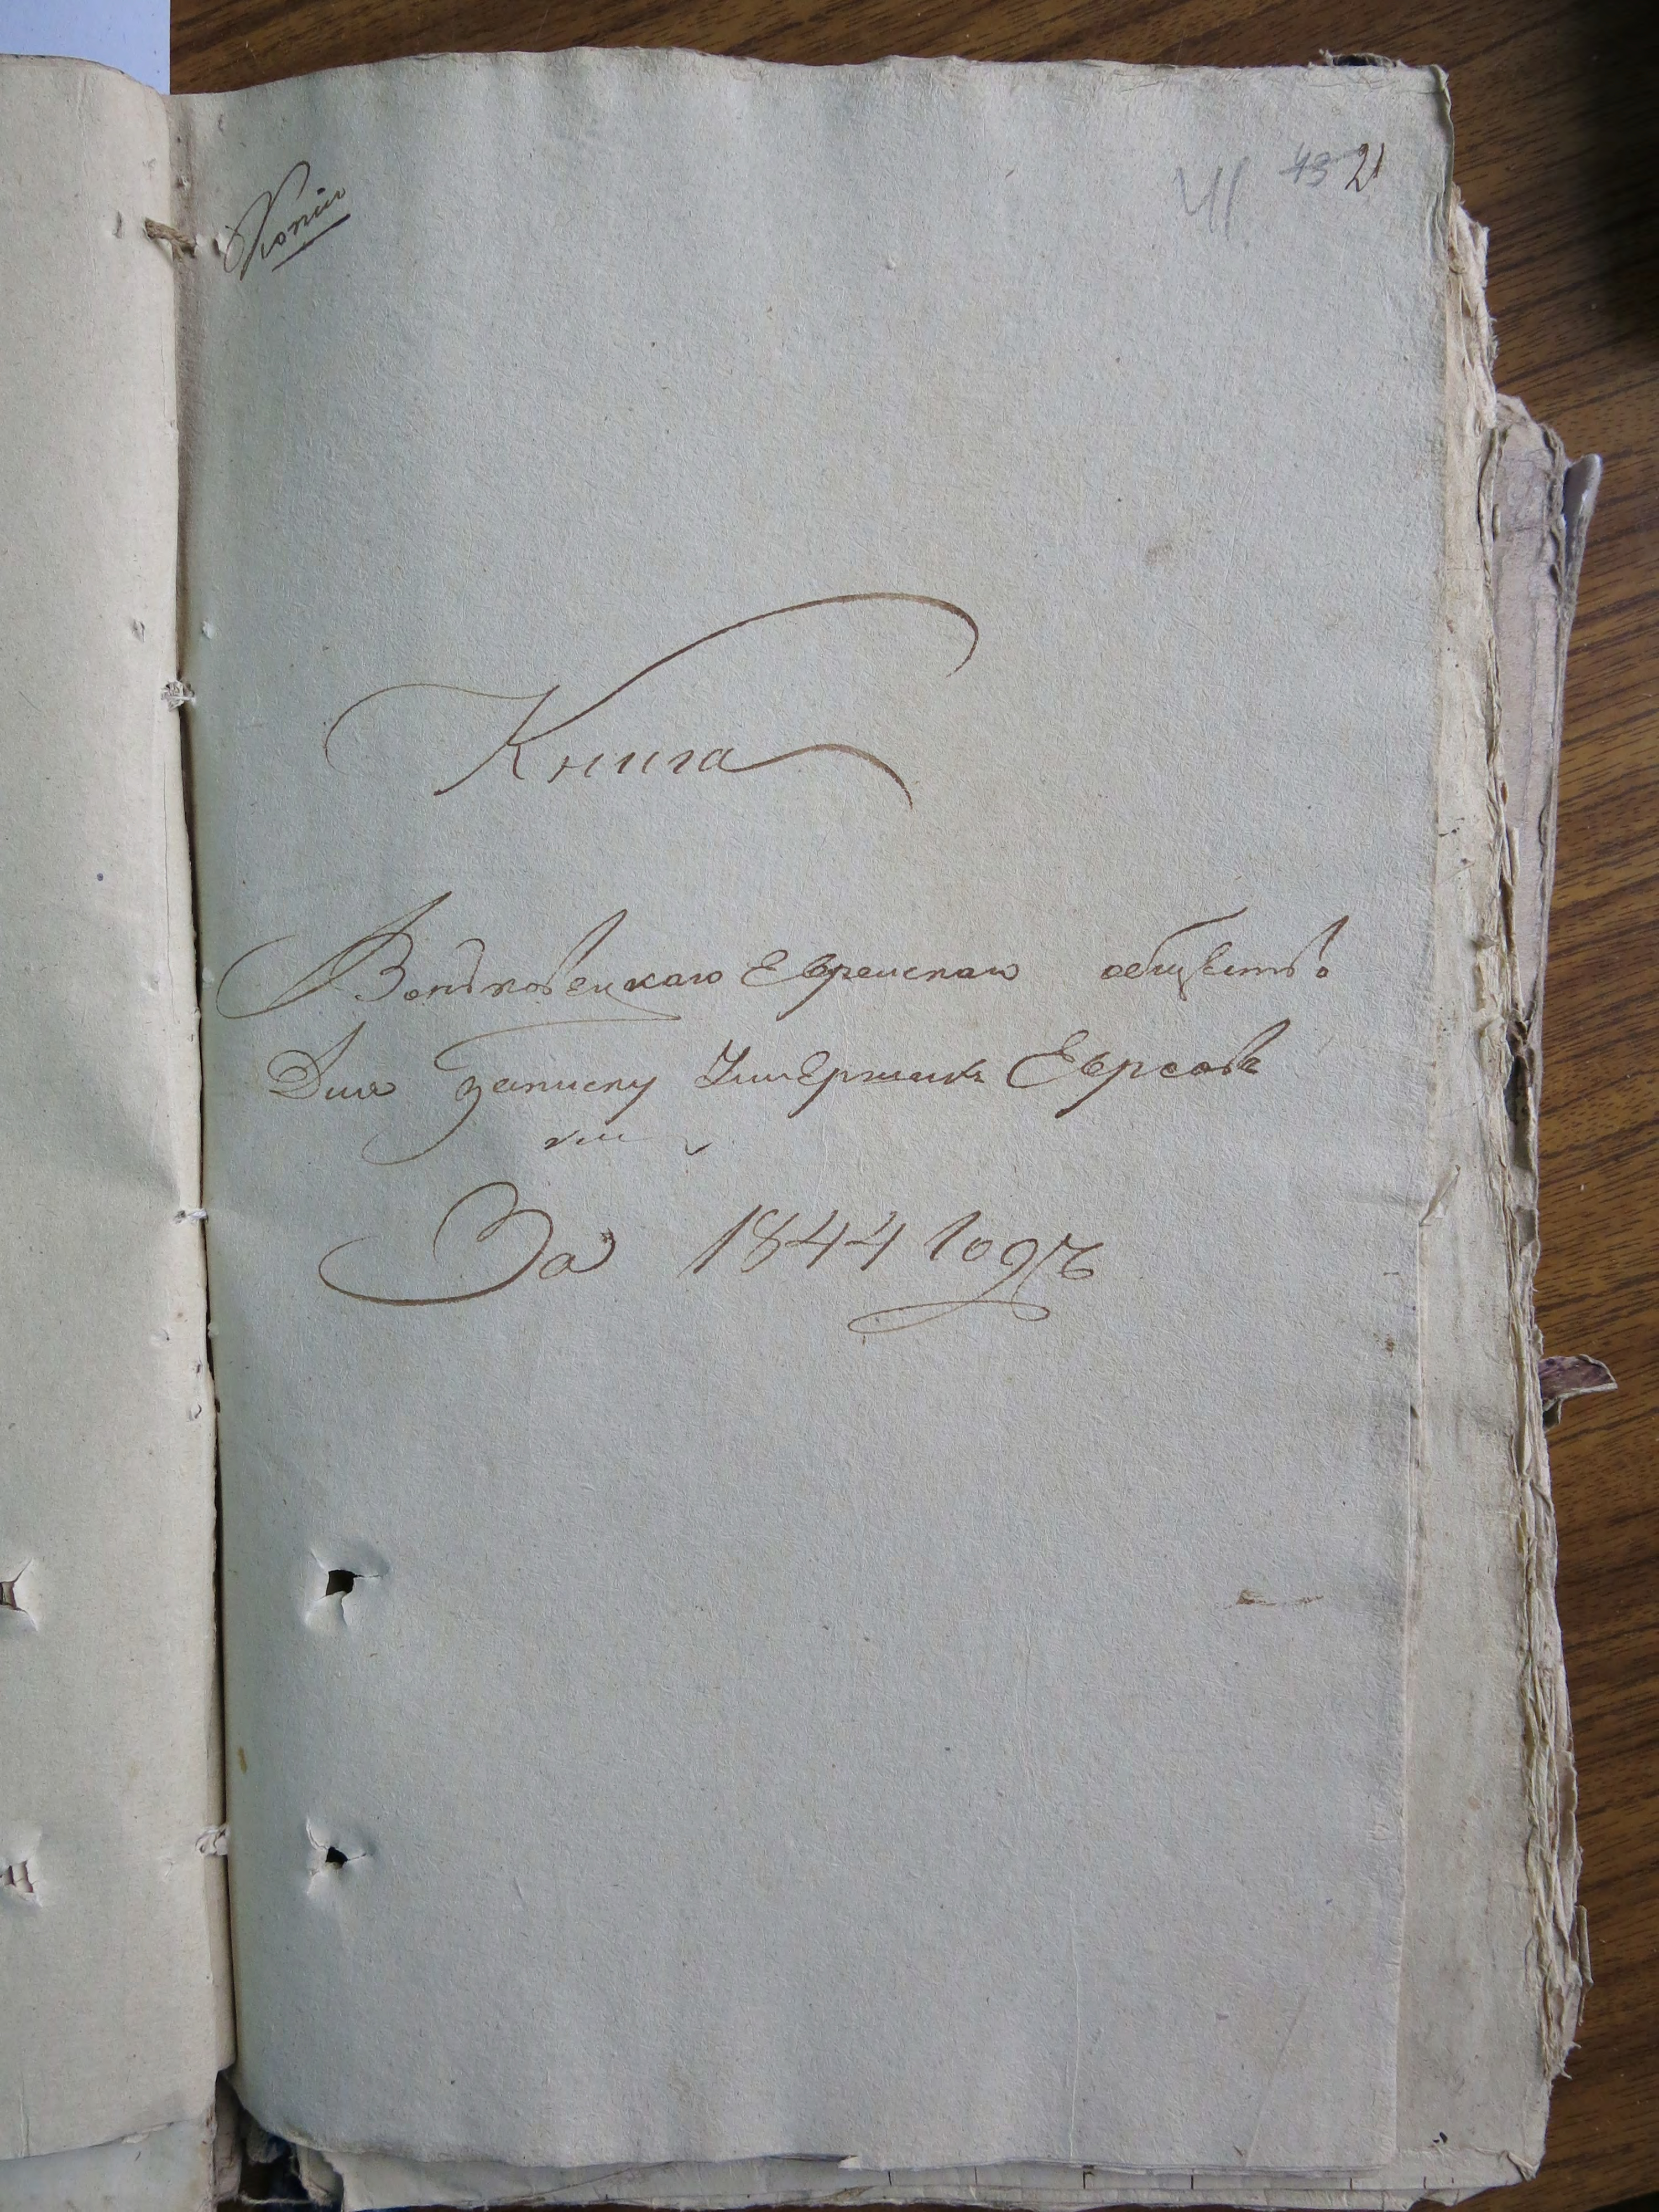 Копія
41 43 21
Книга
Вонъковецкаго Еврейскаго общество
Для записку Умершихъ Евреовъ
За 1844 Годъ